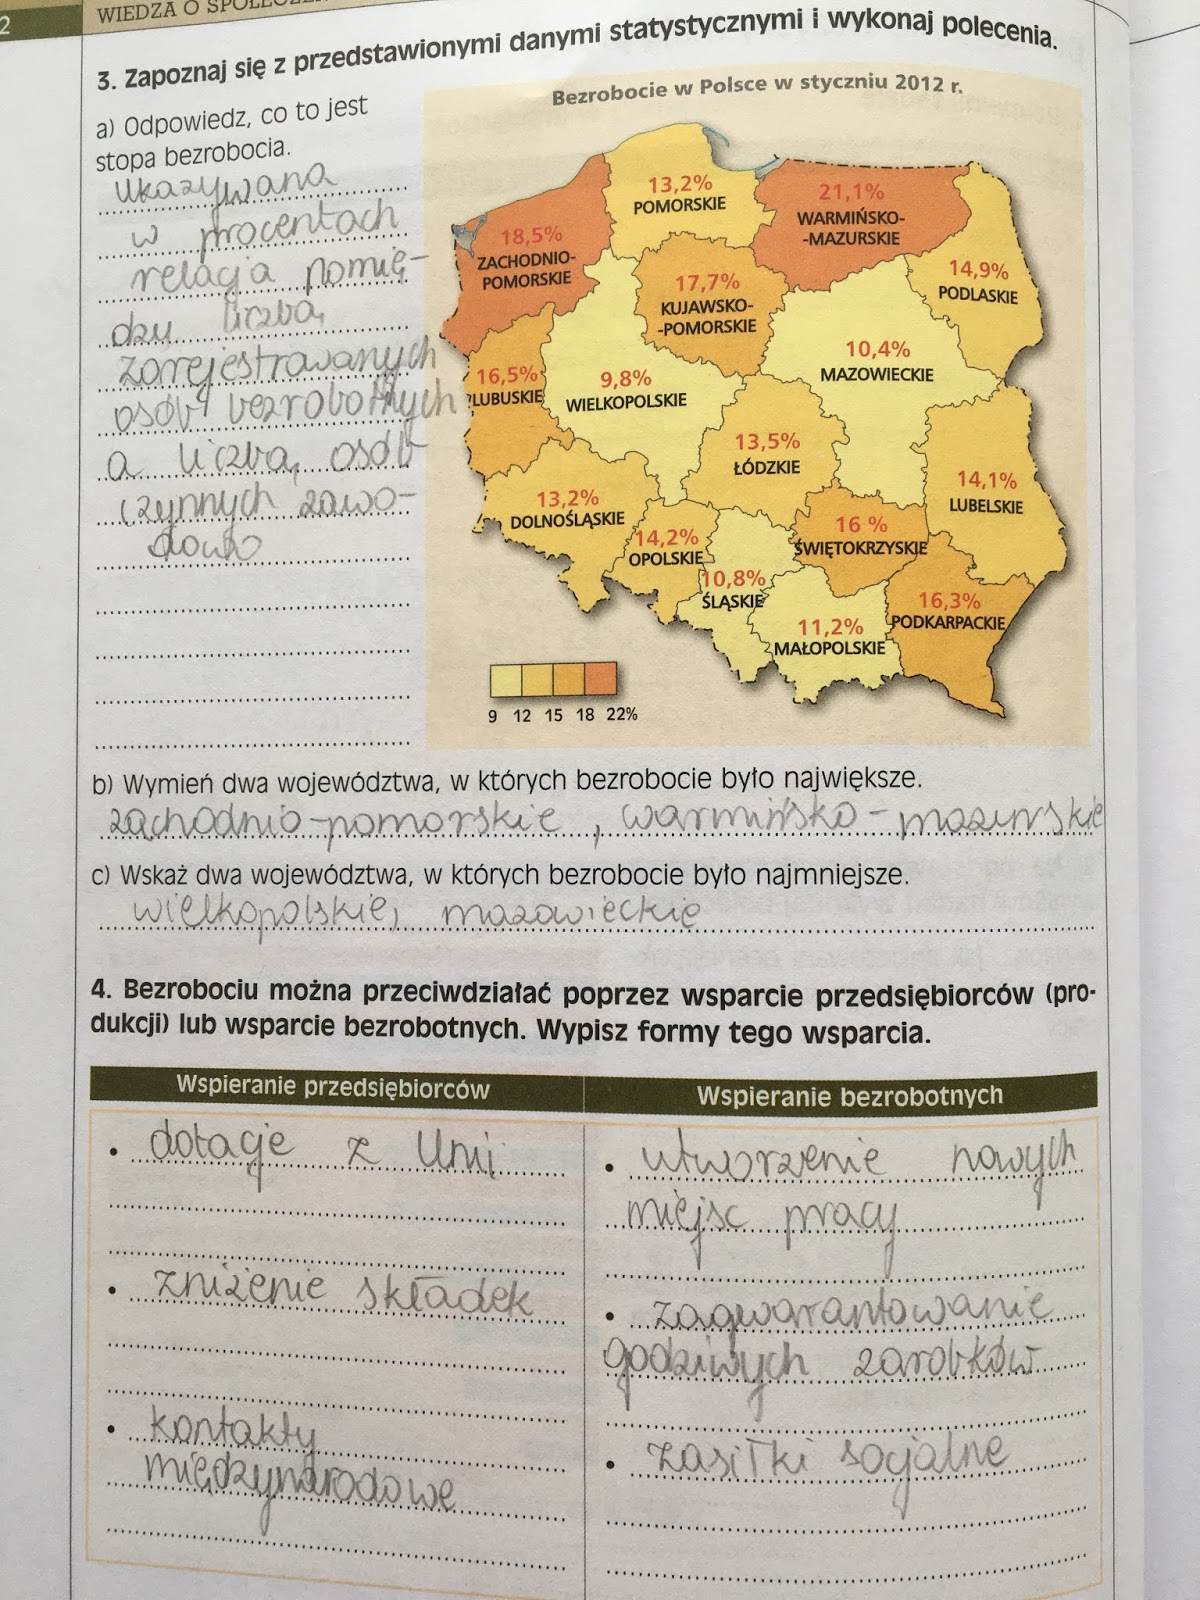 2
WIEDZA O
3. Zapoznaj się z przedstawionymi danymi statystycznymi i wykonaj polecenia.
a) Odpowiedz, co to jest
stopa bezrobocia.
ukazywana
w procentach
relacja pomię-
dzy liczbą
zarejestrowanych
osób bezrobotnych
a liczbą osób
czynnych zawo-
dowo
Bezrobocie w Polsce w styczniu 2012 r.
13,2%
POMORSKIE
21,1%
WARMIŃSKO-
-MAZURSKIE
18,5%
ZACHODNIO-
POMORSKIE
14,9%
PODLASKIE
17,7%
KUJAWSKO-
-POMORSKIE
10,4%
MAZOWIECKIE
16,5%
LUBUSKIE
9,8%
WIELKOPOLSKIE
13,5%
ŁÓDZKIE
14,1%
LUBELSKIE
13,2%
DOLNOŚLĄSKIE
14,2%
OPOLSKIE
16 %
ŚWIĘTOKRZYSKIE
10,8%
ŚLĄSKIE
16,3%
PODKARPACKIE
11,2%
MAŁOPOLSKIE
9 12 15 18 22%
b) Wymień dwa województwa, w których bezrobocie było największe.
zachodnio-pomorskie, warmińsko-mazurskie
c) Wskaż dwa województwa, w których bezrobocie było najmniejsze.
wielkopolskie, mazowieckie
4. Bezrobociu można przeciwdziałać poprzez wsparcie przedsiębiorców (pro-
dukcji) lub wsparcie bezrobotnych. Wypisz formy tego wsparcia.
Wspieranie przedsiębiorców
• dotacje z Unii
• zniżenie składek
• kontakty
międzynarodowe
Wspieranie bezrobotnych
• utworzenie nowych
miejsc pracy
• zagwarantowanie
godziwych zarobków
• zasiłki socjalne